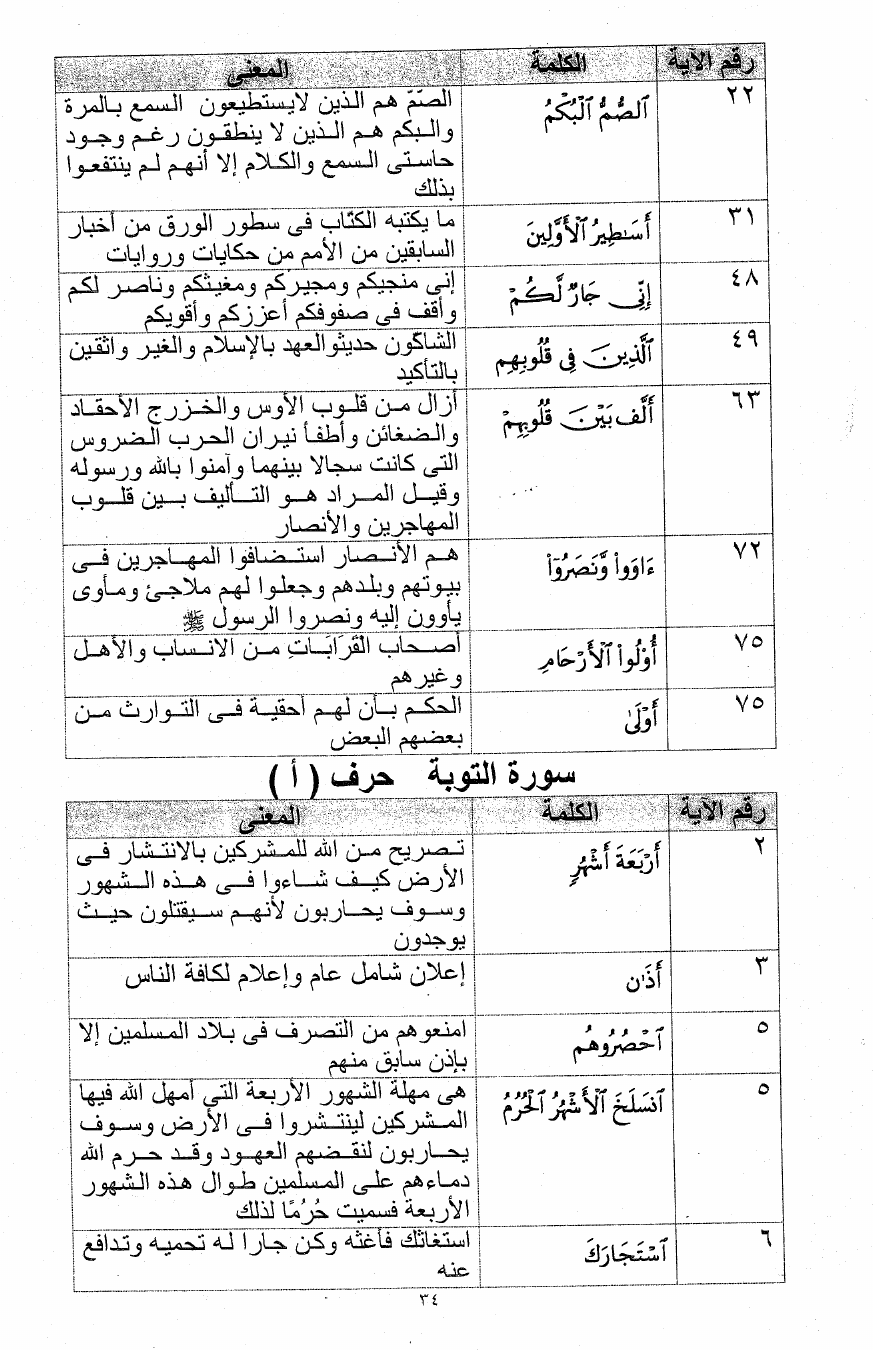 رقم الآية الكلمة المعنى
٢٢ ٱلصُّمُّ ٱلْبُكْمُ الصّمّ هم الذين لايستطيعون السمع بالمرة
والبكم هم الذين لا ينطقون رغم وجود
حاستى السمع والكلام إلا أنهم لم ينتفعوا
بذلك
٣١ أَسَـٰطِيرُ ٱلْأَوَّلِينَ ما يكتبه الكتّاب فى سطور الورق من أخبار
السابقين من الأمم من حكايات وروايات
٤٨ إِنِّى جَارٌ لَّكُمْ إنى منجيكم ومجيركم ومغيثكم وناصر لكم
وأقف فى صفوفكم أعززكم وأقويكم
٤٩ ٱلَّذِينَ فِى قُلُوبِهِم الشاكّون حديثوالعهد بالإسلام والغير واثقين
بالتأكيد
٦٣ أَلَّفَ بَيْنَ قُلُوبِهِمْ أزال من قلوب الأوس والخزرج الأحقاد
والضغائن وأطفأ نيران الحرب الضروس
التى كانت سجالا بينهما وآمنوا بالله ورسوله
وقيل المراد هو التأليف بين قلوب
المهاجرين والأنصار
٧٢ ءَاوَوا۟ وَّنَصَرُوٓا۟ هم الأنصار استضافوا المهاجرين فى
بيوتهم وبلدهم وجعلوا لهم ملاجئ ومأوى
يأوون إليه ونصروا الرسول ﷺ
٧٥ أُو۟لُوا۟ ٱلْأَرْحَامِ أصحاب القَرَابَاتِ من الانساب والأهل
وغيرهم
٧٥ أَوْلَىٰ الحكم بأن لهم أحقية فى التوارث من
بعضهم البعض
سورة التوبة حرف ( أ )
رقم الآية الكلمة المعنى
٢ أَرْبَعَةَ أَشْهُرٍ تصريح من الله للمشركين بالانتشار فى
الأرض كيف شاءوا فى هذه الشهور
وسوف يحاربون لأنهم سيقتلون حيث
يوجدون
٣ أَذَٰن إعلان شامل عام وإعلام لكافة الناس
٥ ٱحْصُرُوهُم امنعوهم من التصرف فى بلاد المسلمين إلا
بإذن سابق منهم
٥ ٱنسَلَخَ ٱلْأَشْهُرُ ٱلْحُرُمُ هى مهلة الشهور الأربعة التى أمهل الله فيها
المشركين لينتشروا فى الأرض وسوف
يحاربون لنقضهم العهود وقد حرم الله
دماءهم على المسلمين طوال هذه الشهور
الأربعة فسميت حُرُمًا لذلك
٦ ٱسْتَجَارَكَ استغاثك فأغثه وكن جارا له تحميه وتدافع
عنه
٣٤